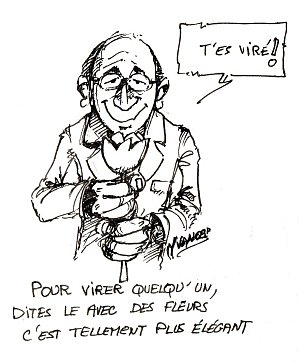 T'ES VIRÉ!!
POUR VIRER QUELQU'UN,
DITES LE AVEC DES FLEURS
C'EST TELLEMENT PLUS ÉLÉGANT